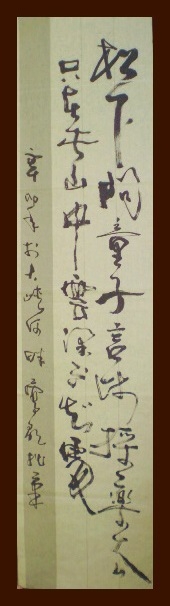 松下問童子言師採藥去
只在此山中雲深不知處
辛卯年於大